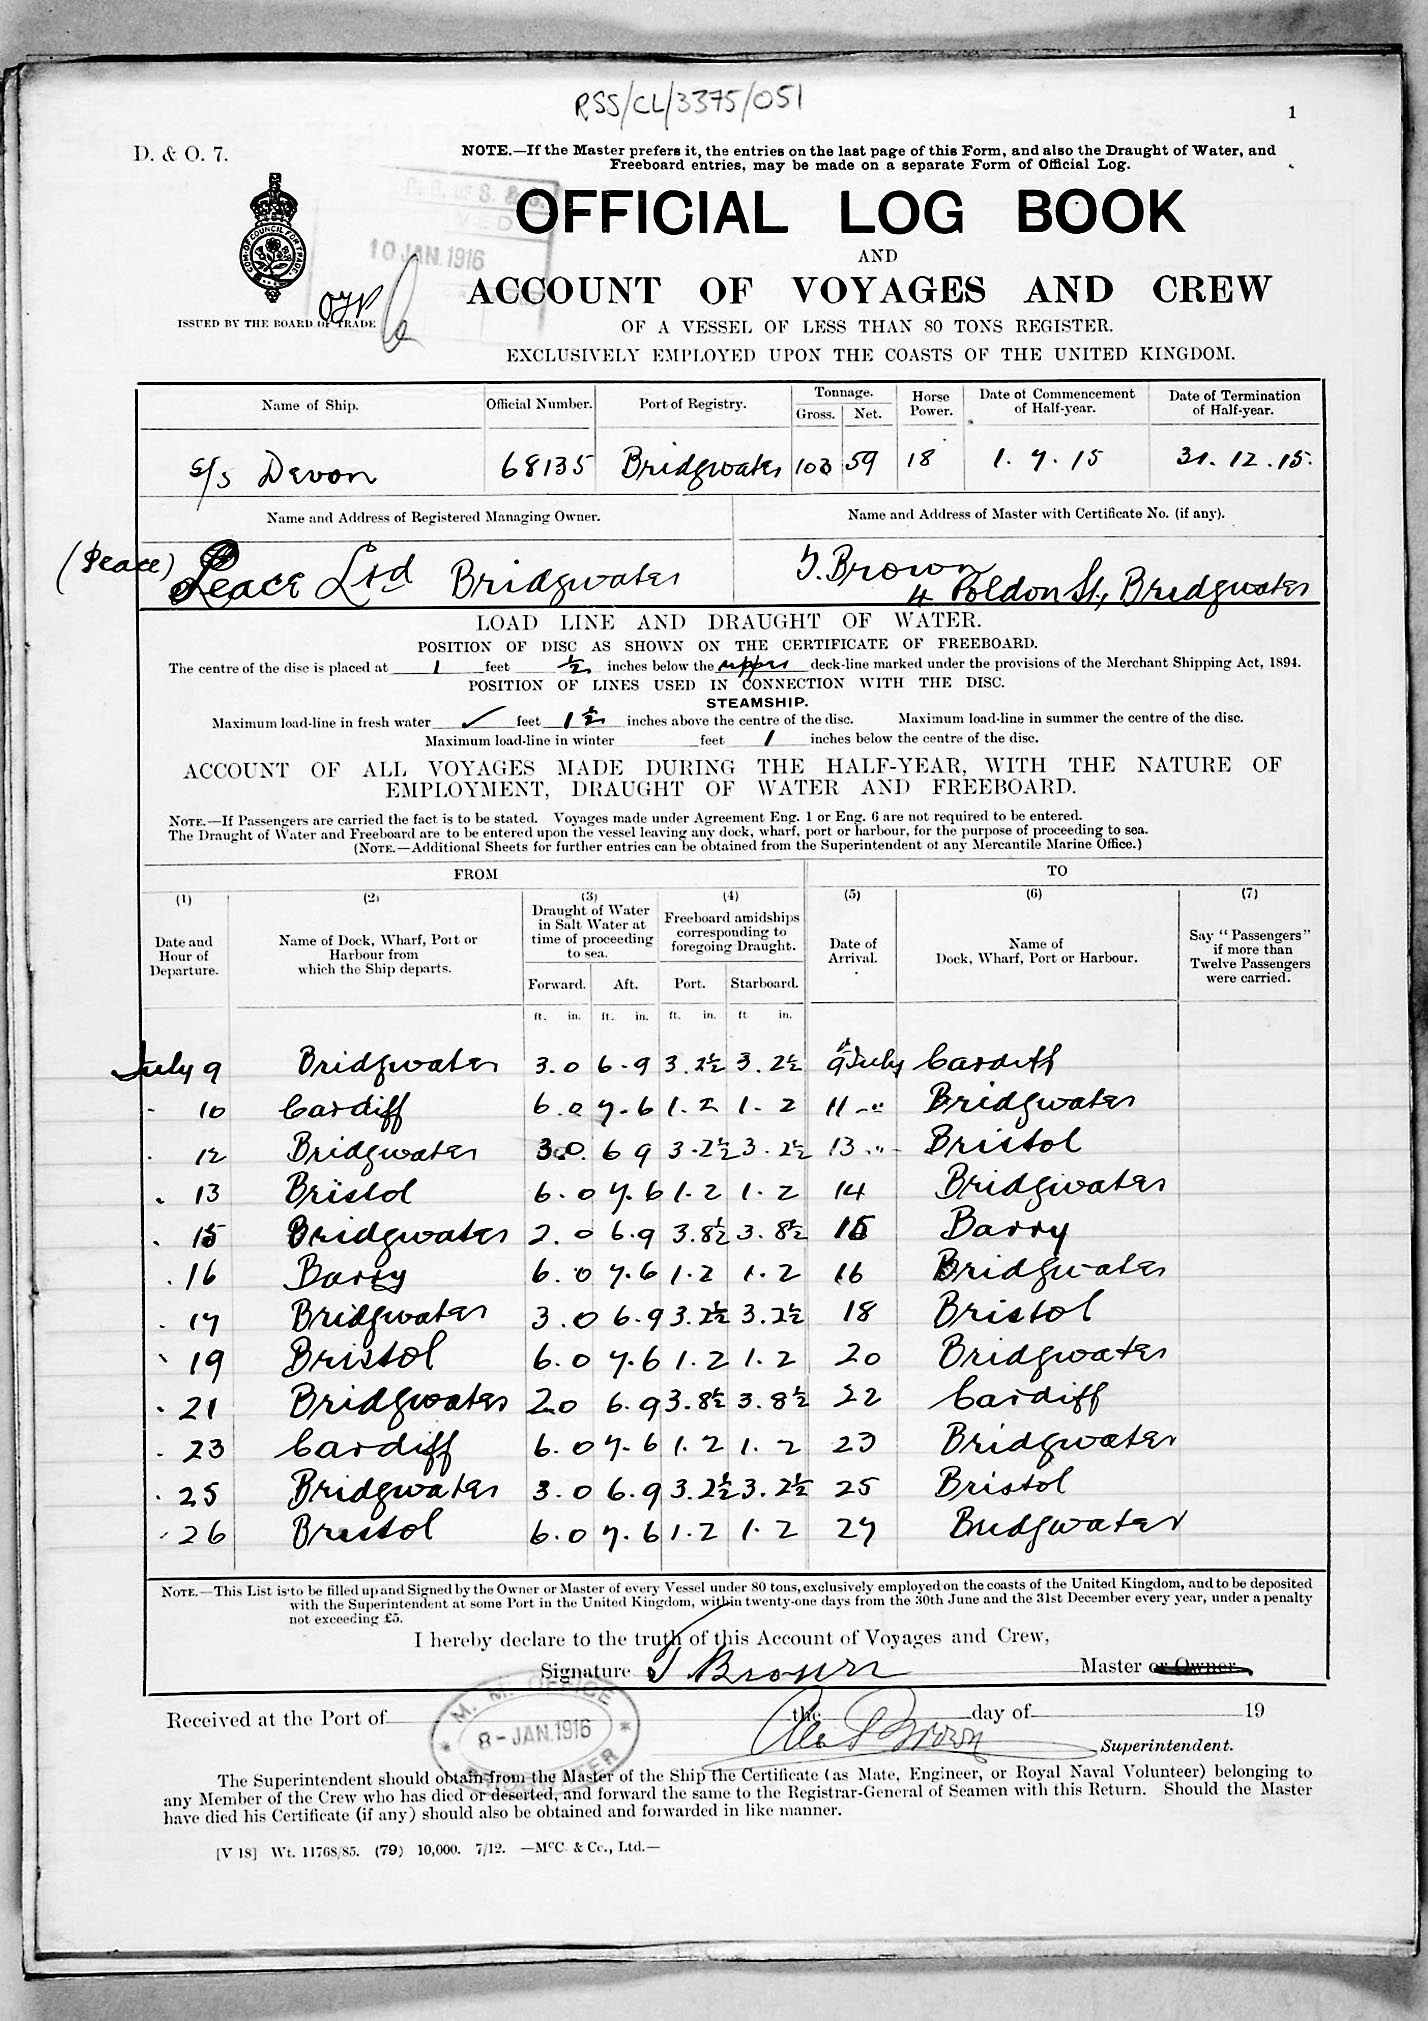 RSS/CL/3375/051
1
D. & O. 7.
NOTE.—If the Master prefers it, the entries on the last page of this Form, and also the Draught of Water, and
Freeboard entries, may be made on a separate Form of Official Log.
OFFICIAL LOG BOOK
AND
10 JAN. 1916
ACCOUNT OF VOYAGES AND CREW
ISSUED BY THE BOARD OF TRADE
OF A VESSEL OF LESS THAN 80 TONS REGISTER.
EXCLUSIVELY EMPLOYED UPON THE COASTS OF THE UNITED KINGDOM.
Name of Ship. Official Number. Port of Registry. Tonnage. Gross. Net. Horse Power. Date of Commencement of Half-year. Date of Termination of Half-year.
s/s Devon 68135 Bridgwater 103 59 18 1.7.15 31.12.15.
Name and Address of Registered Managing Owner. Name and Address of Master with Certificate No. (if any).
(Peace) Peace Ltd Bridgwater J. Brown
4 Poldon St., Bridgwater
LOAD LINE AND DRAUGHT OF WATER.
POSITION OF DISC AS SHOWN ON THE CERTIFICATE OF FREEBOARD.
The centre of the disc is placed at 1 feet ½ inches below the upper deck-line marked under the provisions of the Merchant Shipping Act, 1894.
POSITION OF LINES USED IN CONNECTION WITH THE DISC.
STEAMSHIP.
Maximum load-line in fresh water ✓ feet 1½ inches above the centre of the disc. Maximum load-line in summer the centre of the disc.
Maximum load-line in winter feet 1 inches below the centre of the disc.
ACCOUNT OF ALL VOYAGES MADE DURING THE HALF-YEAR, WITH THE NATURE OF
EMPLOYMENT, DRAUGHT OF WATER AND FREEBOARD.
NOTE.—If Passengers are carried the fact is to be stated. Voyages made under Agreement Eng. 1 or Eng. 6 are not required to be entered.
The Draught of Water and Freeboard are to be entered upon the vessel leaving any dock, wharf, port or harbour, for the purpose of proceeding to sea.
(NOTE.—Additional Sheets for further entries can be obtained from the Superintendent of any Mercantile Marine Office.)
FROM TO
(1) (2) (3) (4) (5) (6) (7)
Date and Hour of Departure. Name of Dock, Wharf, Port or Harbour from which the Ship departs. Draught of Water in Salt Water at time of proceeding to sea. Freeboard amidships corresponding to foregoing Draught. Date of Arrival. Name of Dock, Wharf, Port or Harbour. Say "Passengers" if more than Twelve Passengers were carried.
Forward. Aft. Port. Starboard.
ft. in. ft. in. ft. in. ft in.
July 9 Bridgwater 3.0 6.9 3.2½ 3.2½ 9 July Cardiff
" 10 Cardiff 6.0 7.6 1.2 1.2 11 " Bridgwater
" 12 Bridgwater 3.0. 6 9 3.2½ 3.2½ 13 " Bristol
" 13 Bristol 6.0 7.6 1.2 1.2 14 Bridgwater
" 15 Bridgwater 2.0 6.9 3.8½ 3.8½ 15 Barry
" 16 Barry 6.0 7.6 1.2 1.2 16 Bridgwater
" 17 Bridgwater 3.0 6.9 3.2½ 3.2½ 18 Bristol
" 19 Bristol 6.0 7.6 1.2 1.2 20 Bridgwater
" 21 Bridgwater 2.0 6.9 3.8½ 3.8½ 22 Cardiff
" 23 Cardiff 6.0 7.6 1.2 1.2 23 Bridgwater
" 25 Bridgwater 3.0 6.9 3.2½ 3.2½ 25 Bristol
" 26 Bristol 6.0 7.6 1.2 1.2 27 Bridgwater
NOTE.—This List is to be filled up and Signed by the Owner or Master of every Vessel under 80 tons, exclusively employed on the coasts of the United Kingdom, and to be deposited
with the Superintendent at some Port in the United Kingdom, within twenty-one days from the 30th June and the 31st December every year, under a penalty
not exceeding £5.
I hereby declare to the truth of this Account of Voyages and Crew,
Signature J Brown Master or Owner.
Received at the Port of the day of 19
M. M. OFFICE
8 - JAN. 1916
Brown Superintendent.
The Superintendent should obtain from the Master of the Ship the Certificate (as Mate, Engineer, or Royal Naval Volunteer) belonging to
any Member of the Crew who has died or deserted, and forward the same to the Registrar-General of Seamen with this Return. Should the Master
have died his Certificate (if any) should also be obtained and forwarded in like manner.
[V 18] Wt. 11768/85. (79) 10,000. 7/12. —McC. & Co., Ltd.—